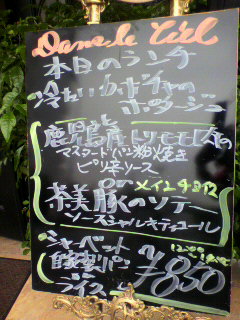 Dans le Ciel
本日のランチ
冷たいカボチャの
ポタージュ
鹿児島産トリモモ肉の
マスタードパン粉焼き
ピリ辛ソース
or メイン チョイス
茶美豚のソテー
ソースシャルキュティエール
シャーベット
自家製パン
ライス
¥850